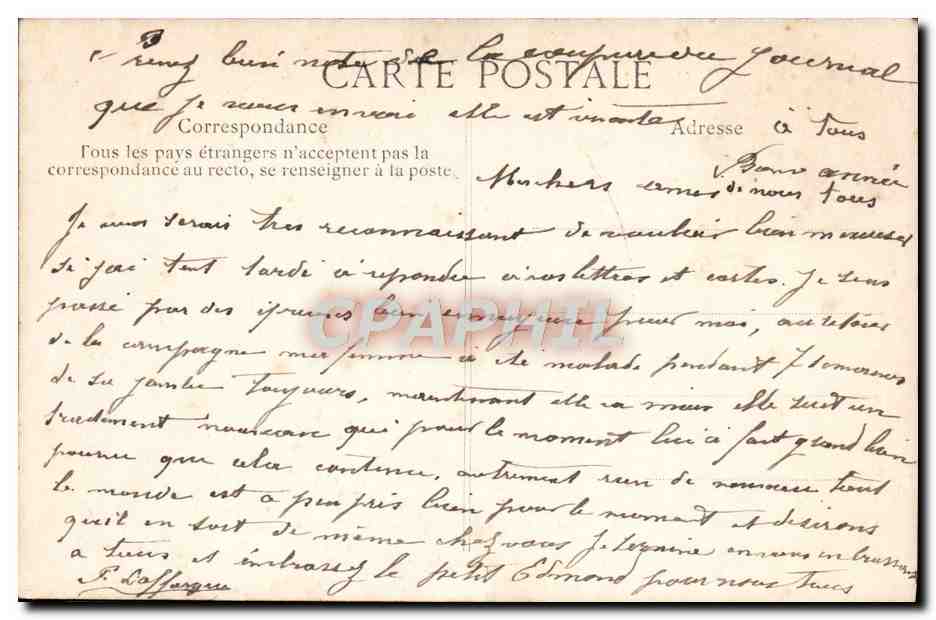 Prenez bien note de la coupure du Journal
CARTE POSTALE
que je vous envoie elle est
Correspondance
Adresse
à tous
Tous les pays étrangers n'acceptent pas la
correspondance au recto, se renseigner à la poste.
Bonne année
de nous tous
Mes chers amis
Je vous serais tres reconnaissant de vouloir bien m'excuser
si j'ai tant tardé a repondre a vos lettres et cartes. Je suis
passé par des epreuves bien ennuyeuse pour moi, au retour
de la campagne ma femme a été malade pendant 7 semaines
de sa jambe toujours, maintenant elle va mieux elle suit un
traitement nouveau qui pour le moment lui a fait grand bien
pourvu que cela continue, autrement rien de nouveau tout
le monde est a peu près bien pour le moment et desirons
qu'il en soit de même chez vous Je termine en vous embrassant
a tous et embrassez le petit Edmond pour nous tous
F. Laffargue
CPAPHIL